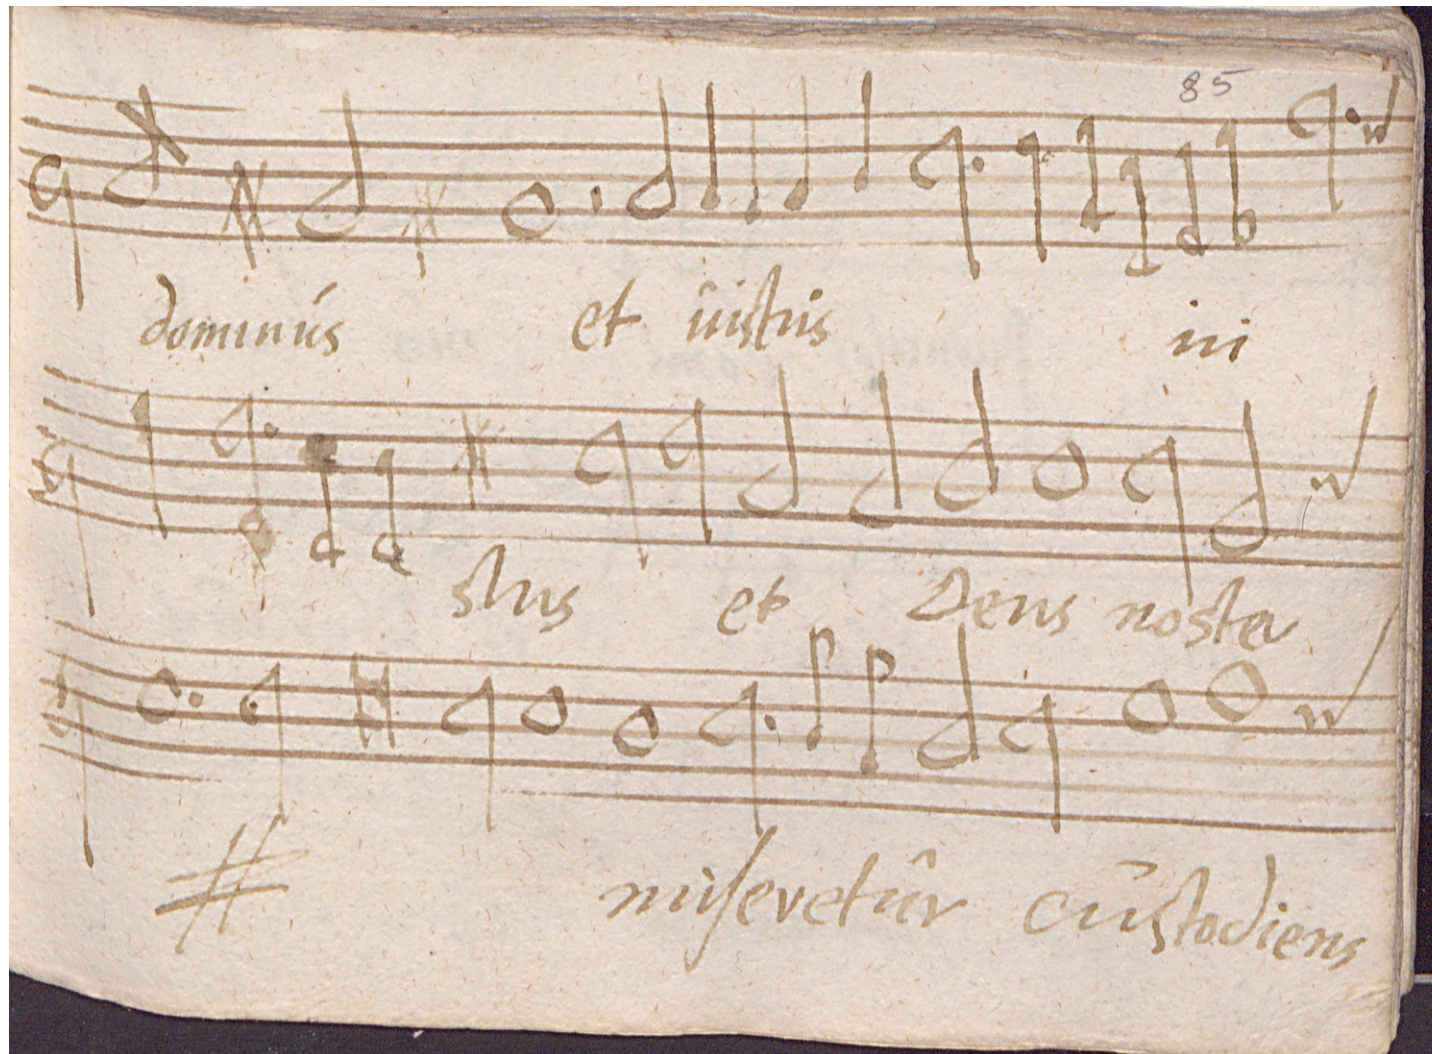 85
dominús et iüstus iu
stus et Deus noster
miseretûr cūstodiens